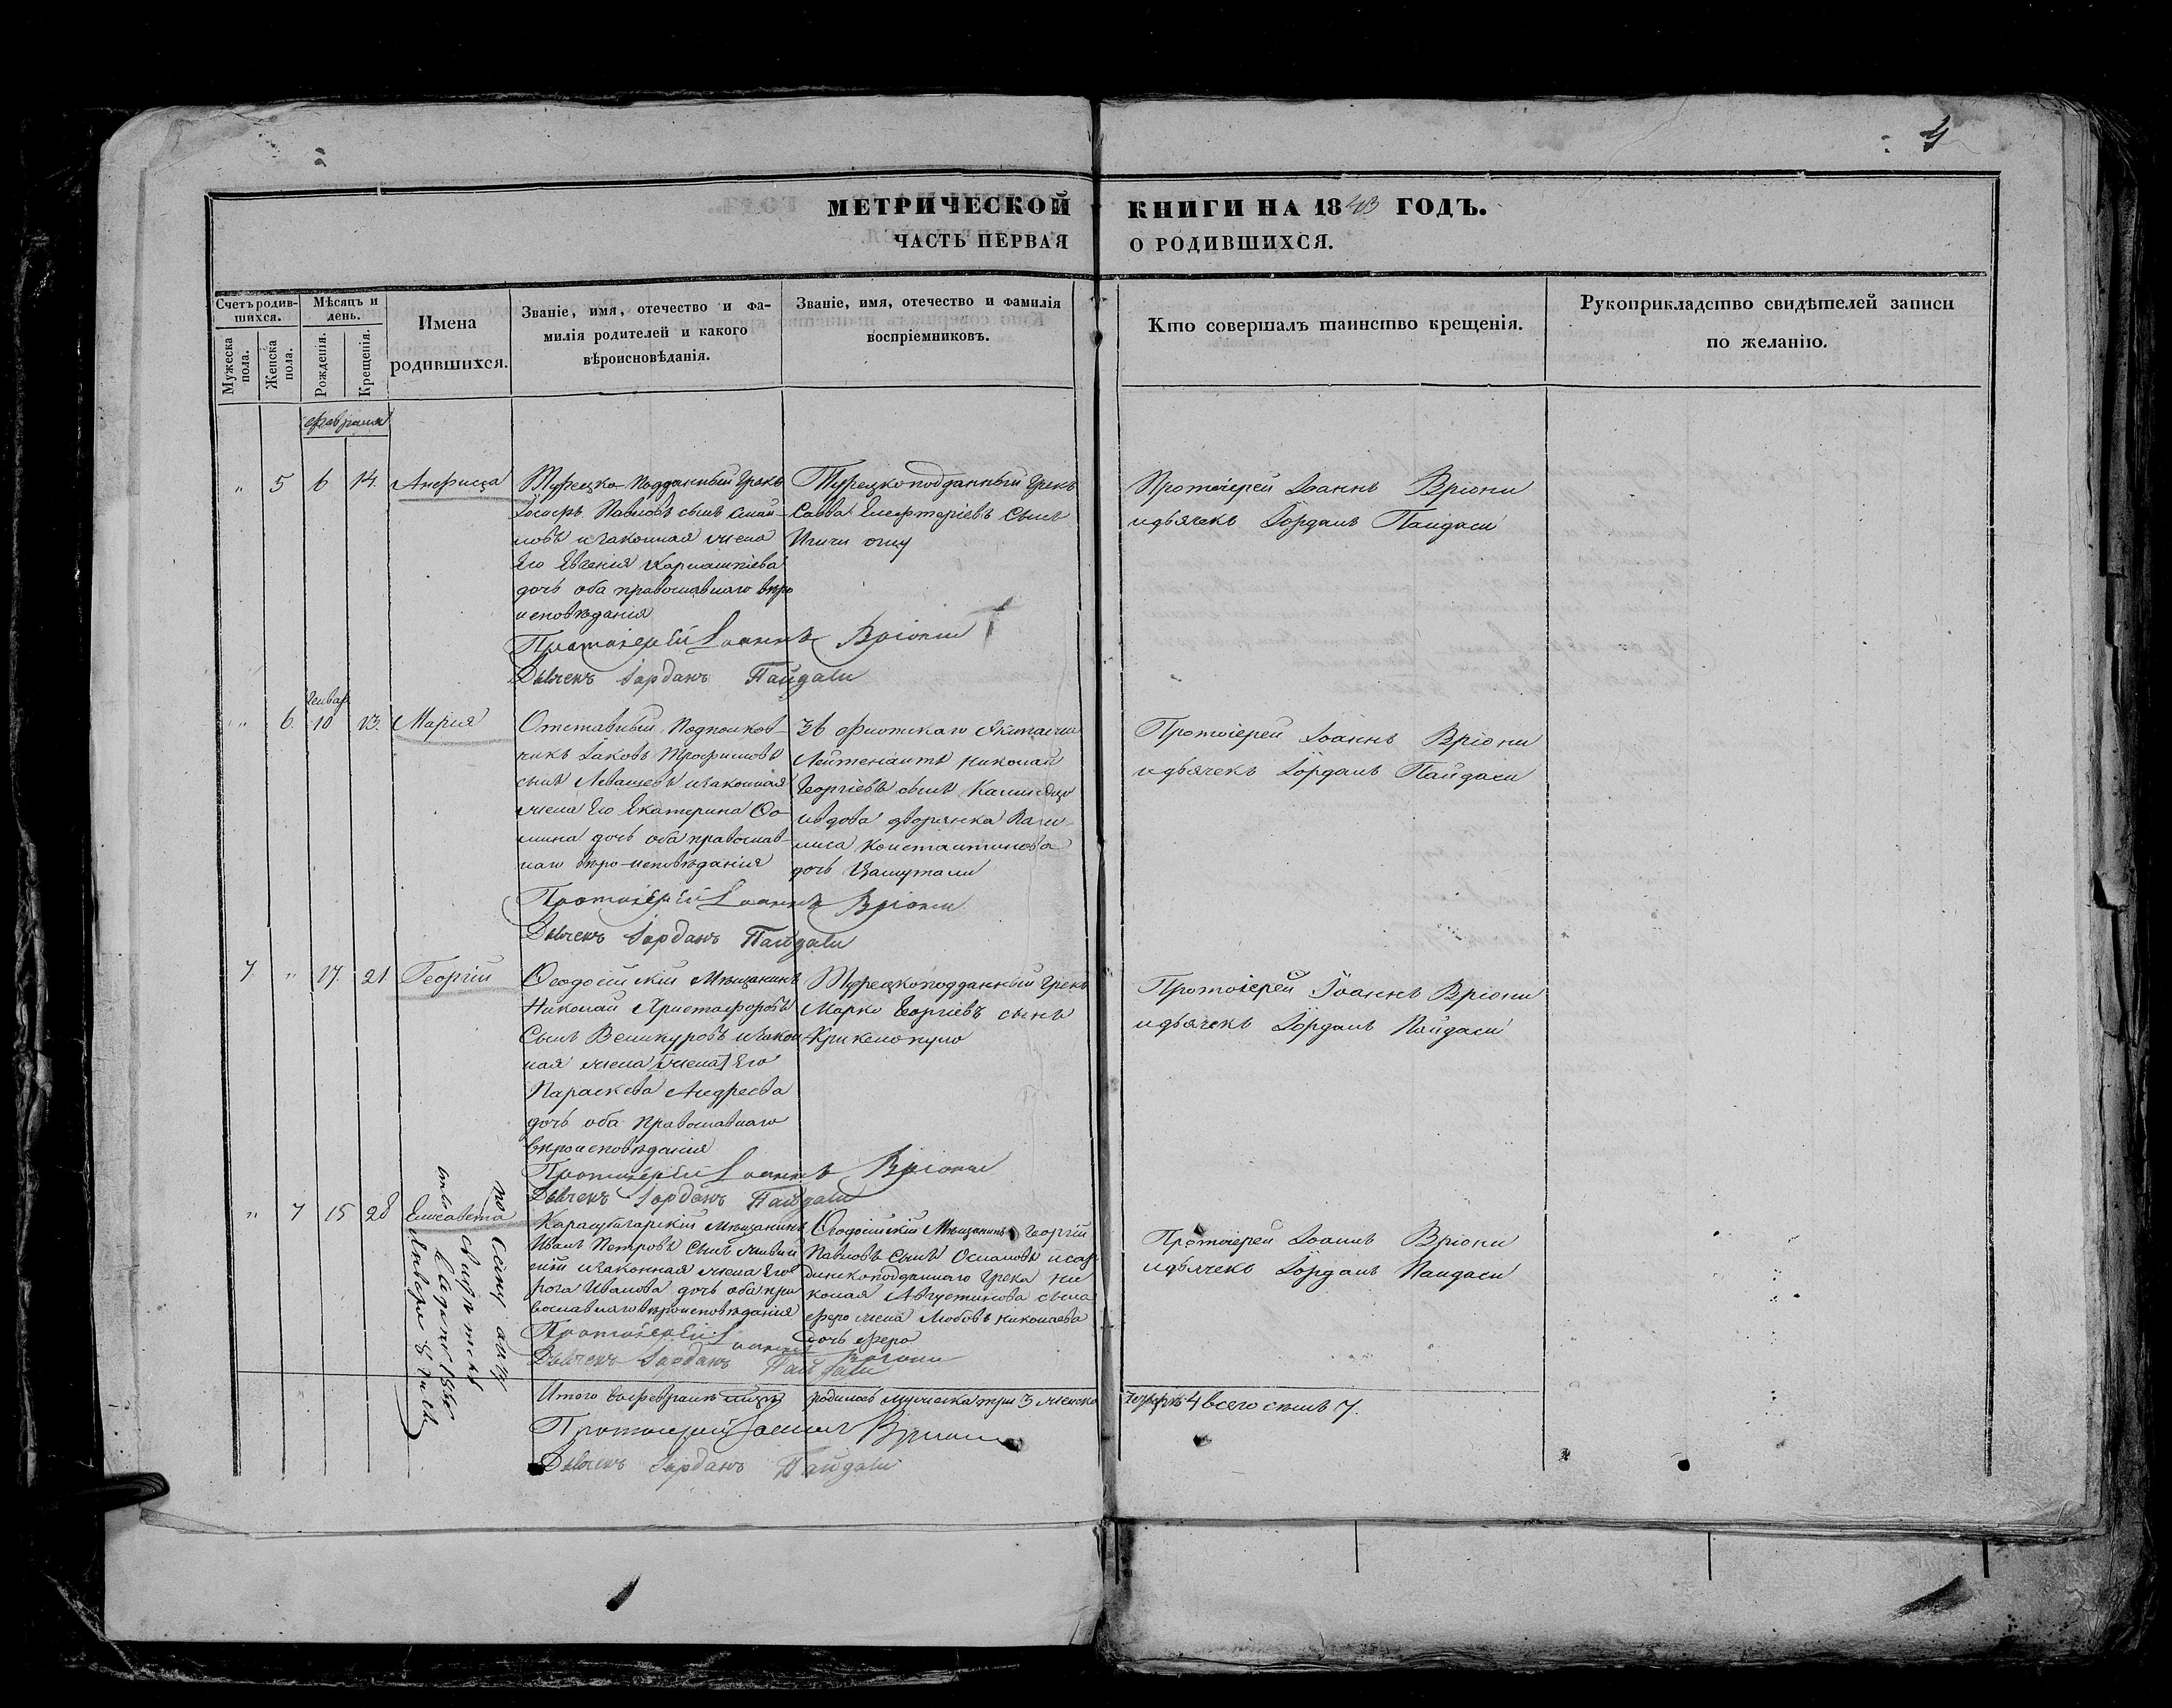 4
МЕТРИЧЕСКОЙ КНИГИ НА 1843 ГОДЪ.
ЧАСТЬ ПЕРВАЯ О РОДИВШИХСЯ.
Счетъ родив-
шихся.
Мужеска пола.
Женска пола.
Мѣсяцъ и
день.
Рожденія.
Крещенія.
Имена
родившихся.
Званіе, имя, отечество и фа-
милія родителей и какого
вѣроисповѣданія.
Званіе, имя, отечество и фамилія
воспріемниковъ.
Кто совершалъ таинство крещенія.
Рукоприкладство свидѣтелей записи
по желанію.
февраля
" 5 6 14.
Турецко-подданный Грекъ
Іосифъ Павловъ сынъ
новъ и законная жена
Его Евгенія
дочь оба православнаго вѣро
исповѣданія
Турецкоподданный Грекъ
Савва Елефтеріевъ Сынъ
Протоіерей Іоаннъ Вріони
и дьячекъ Іорданъ Пайдаси
Протоіерей Іоаннъ Вріони
Дьячекъ Іорданъ Пайдаси
Генвар
" 6 10 13. Марія
Отставный Подполков-
никъ Іаковъ Трофимовъ
сынъ и законная
жена Его Екатерина Ѳо-
мина дочь оба православ-
наго вѣро-исповѣданія
Флотскаго Экипажа
Лейтенантъ Николай
Георгіевъ сынъ
и вдова дворянка
Константинова
дочь
Протоіерей Іоаннъ Вріони
и дьячекъ Іорданъ Пайдаси
Протоіерей Іоаннъ Вріони
Дьячекъ Іорданъ Пайдаси
7 " 17. 21 Георгій
Ѳеодосійскій Мѣщанинъ
Николай Христофоровъ
Сынъ и закон
ная жена [жена] Его
Параскева Андреева
дочь оба Православнаго
вѣроисповѣданія
Турецкоподданный Грекъ
Марко Георгіевъ сынъ
Протоіерей Іоаннъ Вріони
и дьячекъ Іорданъ Пайдаси
Протоіерей Іоаннъ Вріони
Дьячекъ Іорданъ Пайдаси
" 7 15 28 Елисавета
по Сему акту
Января 8
Карасубазарскій Мѣщанинъ
Иванъ Петровъ Сынъ
и законная жена Его
Иванова дочь оба пра
вославнаго вѣроисповѣданія
Ѳеодосійскій Мѣщанинъ Георгій
Павловъ Сынъ
Грека Ни
колая Августинова сына
жена Любовь Николаева
дочь
Протоіерей Іоаннъ Вріони
и дьячекъ Іорданъ Пайдаси
Протоіерей Іоаннъ Вріони
Дьячекъ Іорданъ Пайдаси
Итого въ февралѣ родилось мужеска три 3 женска четыре 4 всего семь 7.
Протоіерей Іоаннъ Вріони
Дьячекъ Іорданъ Пайдаси